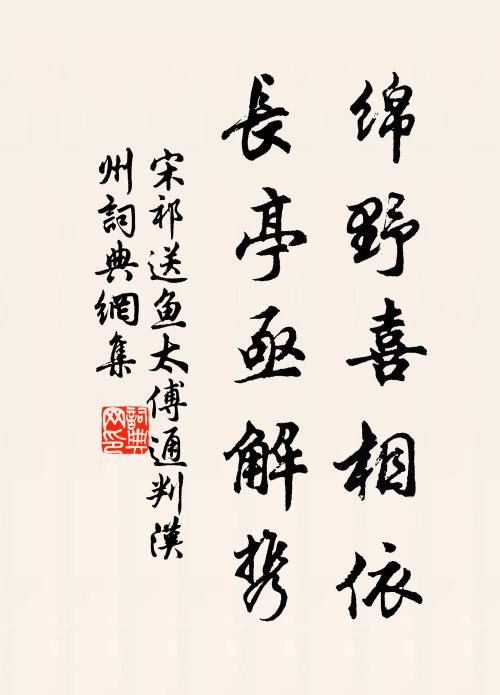 绵野喜相依
長亭亟解携
宋祁送魚太傅通判漢
州詞典網集
詞典网印